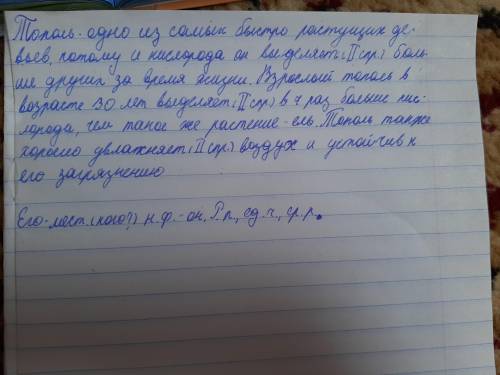 Тополь - одно из самых быстро растущих де-
вьев, потому и кислорода он выделяет (II спр.) боль-
ше других за время жизни. Взрослый тополь в
возрасте 30 лет выделяет (II спр) в 7 раз больше кис-
лорода, чем такое же растение - ель. Тополь также
хорошо увлажняет (II спр.) воздух и устойчив к
его загрязнению
Его - мест. (кого?) н. ф. - он, Р. п., ед. ч., ср. р.